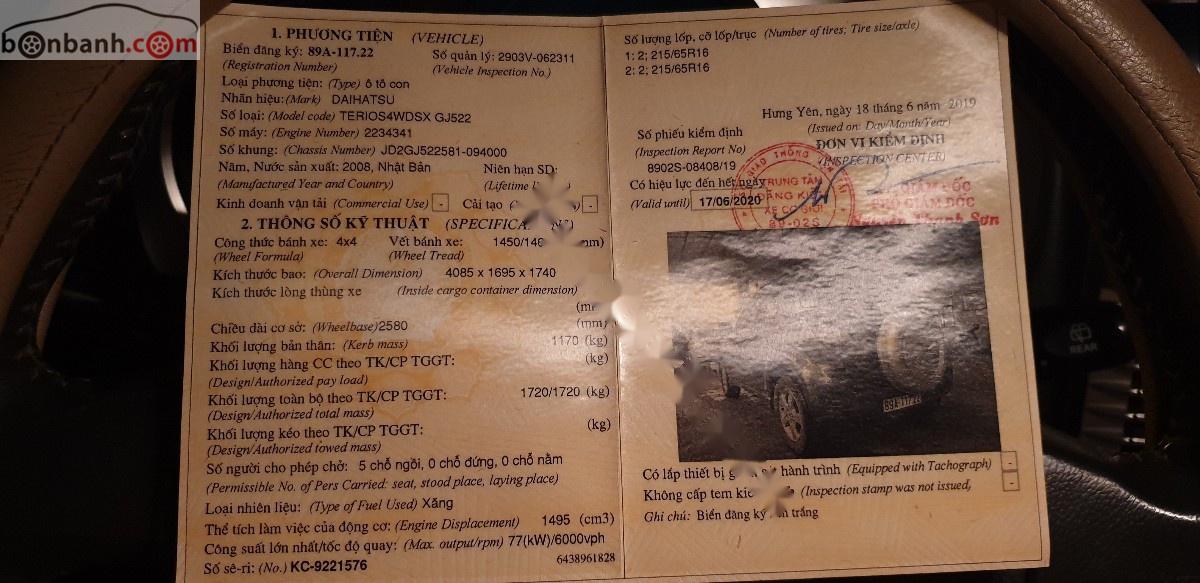 bonbanh.com
1. PHƯƠNG TIỆN (VEHICLE)
Biển đăng ký: 89A-117.22 Số quản lý: 2903V-062311
(Registration Number) (Vehicle Inspection No.)
Loại phương tiện: (Type) ô tô con
Nhãn hiệu: (Mark) DAIHATSU
Số loại: (Model code) TERIOS4WDSX GJ522
Số máy: (Engine Number) 2234341
Số khung: (Chassis Number) JD2GJ522581-094000
Năm, Nước sản xuất: 2008, Nhật Bản Niên hạn SD:
(Manufactured Year and Country) (Lifetime
Kinh doanh vận tải (Commercial Use) - Cải tạo -
2. THÔNG SỐ KỸ THUẬT (SPECIFICA
Công thức bánh xe: 4x4 Vết bánh xe: 1450/146 mm)
(Wheel Formula) (Wheel Tread)
Kích thước bao: (Overall Dimension) 4085 x 1695 x 1740
Kích thước lòng thùng xe (Inside cargo container dimension)
Chiều dài cơ sở: (Wheelbase)2580 (mm)
Khối lượng bản thân: (Kerb mass) 1170 (kg)
Khối lượng hàng CC theo TK/CP TGGT: (kg)
(Design/Authorized pay load)
Khối lượng toàn bộ theo TK/CP TGGT: 1720/1720 (kg)
(Design/Authorized total mass)
Khối lượng kéo theo TK/CP TGGT: (kg)
(Design/Authorized towed mass)
Số người cho phép chở: 5 chỗ ngồi, 0 chỗ đứng, 0 chỗ nằm
(Permissible No. of Pers Carried: seat, stood place, laying place)
Loại nhiên liệu: (Type of Fuel Used) Xăng
Thể tích làm việc của động cơ: (Engine Displacement) 1495 (cm3)
Công suất lớn nhất/tốc độ quay: (Max. output/rpm) 77(kW)/6000vph
Số sê-ri: (No.) KC-9221576 6438961828
Số lượng lốp, cỡ lốp/trục (Number of tires; Tire size/axle)
1: 2; 215/65R16
2: 2; 215/65R16
Hưng Yên, ngày 18 tháng 6 năm 2019
(Issued on: Day/Month/Year)
Số phiếu kiểm định ĐƠN VỊ KIỂM ĐỊNH
(Inspection Report No) (INSPECTION CENTER)
8902S-08408/19
Có hiệu lực đến hết ngày
(Valid until) 17/06/2020
TRUNG TÂM
ĐĂNG KIỂM
XE CƠ GIỚI
89-02S
GIÁM ĐỐC
PHÓ GIÁM ĐỐC
Sơn
89A 11722
Có lắp thiết bị hành trình (Equipped with Tachograph) -
Không cấp tem (Inspection stamp was not issued, -
Ghi chú: Biển đăng ký trắng
REAR